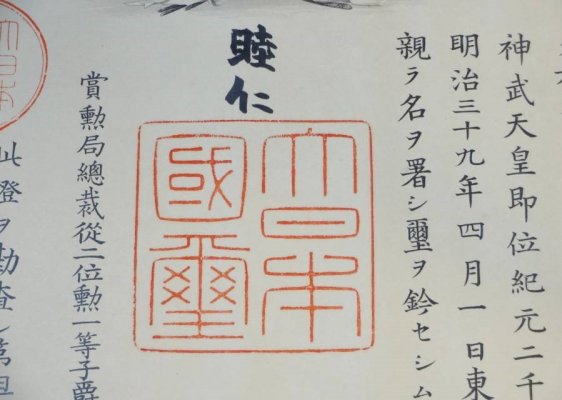 神武天皇即位紀元二千
明治三十九年四月一日東
親ラ名ヲ署シ璽ヲ鈐セシム
睦仁
大日本
國璽
賞勲局總裁從二位勲一等子爵
此證ヲ勘査シ第
大日本